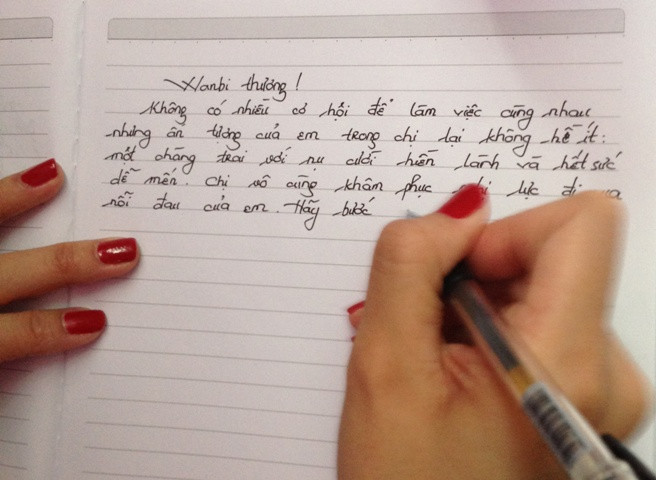 Wanbi thương!
Không có nhiều cơ hội để làm việc cùng nhau
nhưng ấn tượng của em trong chị lại không hề ít:
một chàng trai với nụ cười hiền lành và hết sức
dễ mến. Chị vô cùng khâm phục lực đi
nỗi đau của em. Hãy bước